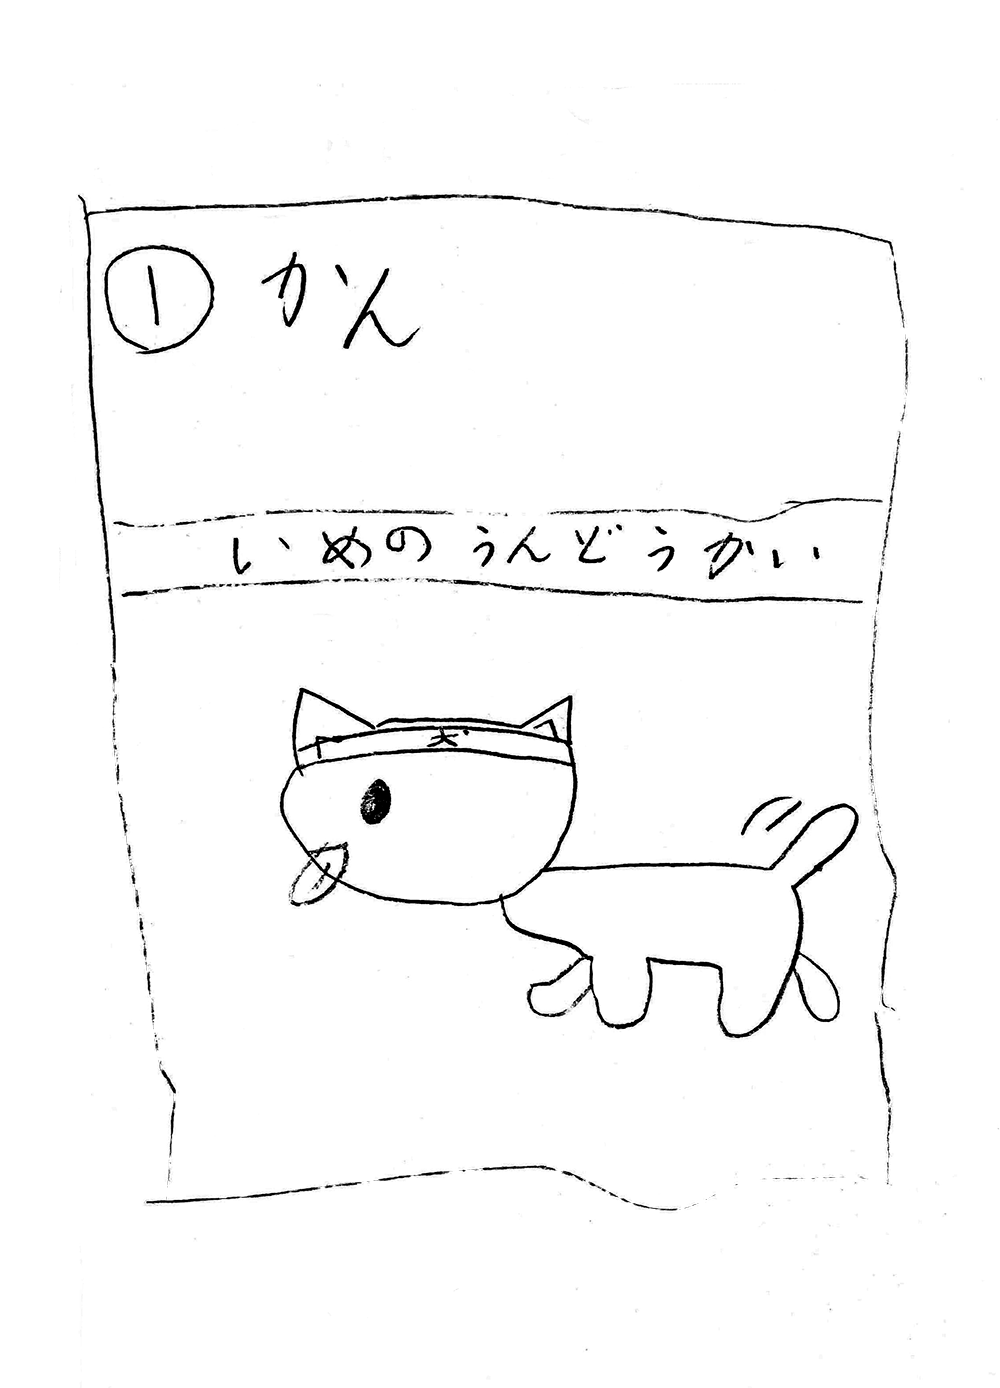 ① かん
いめのうんどうかい
犬